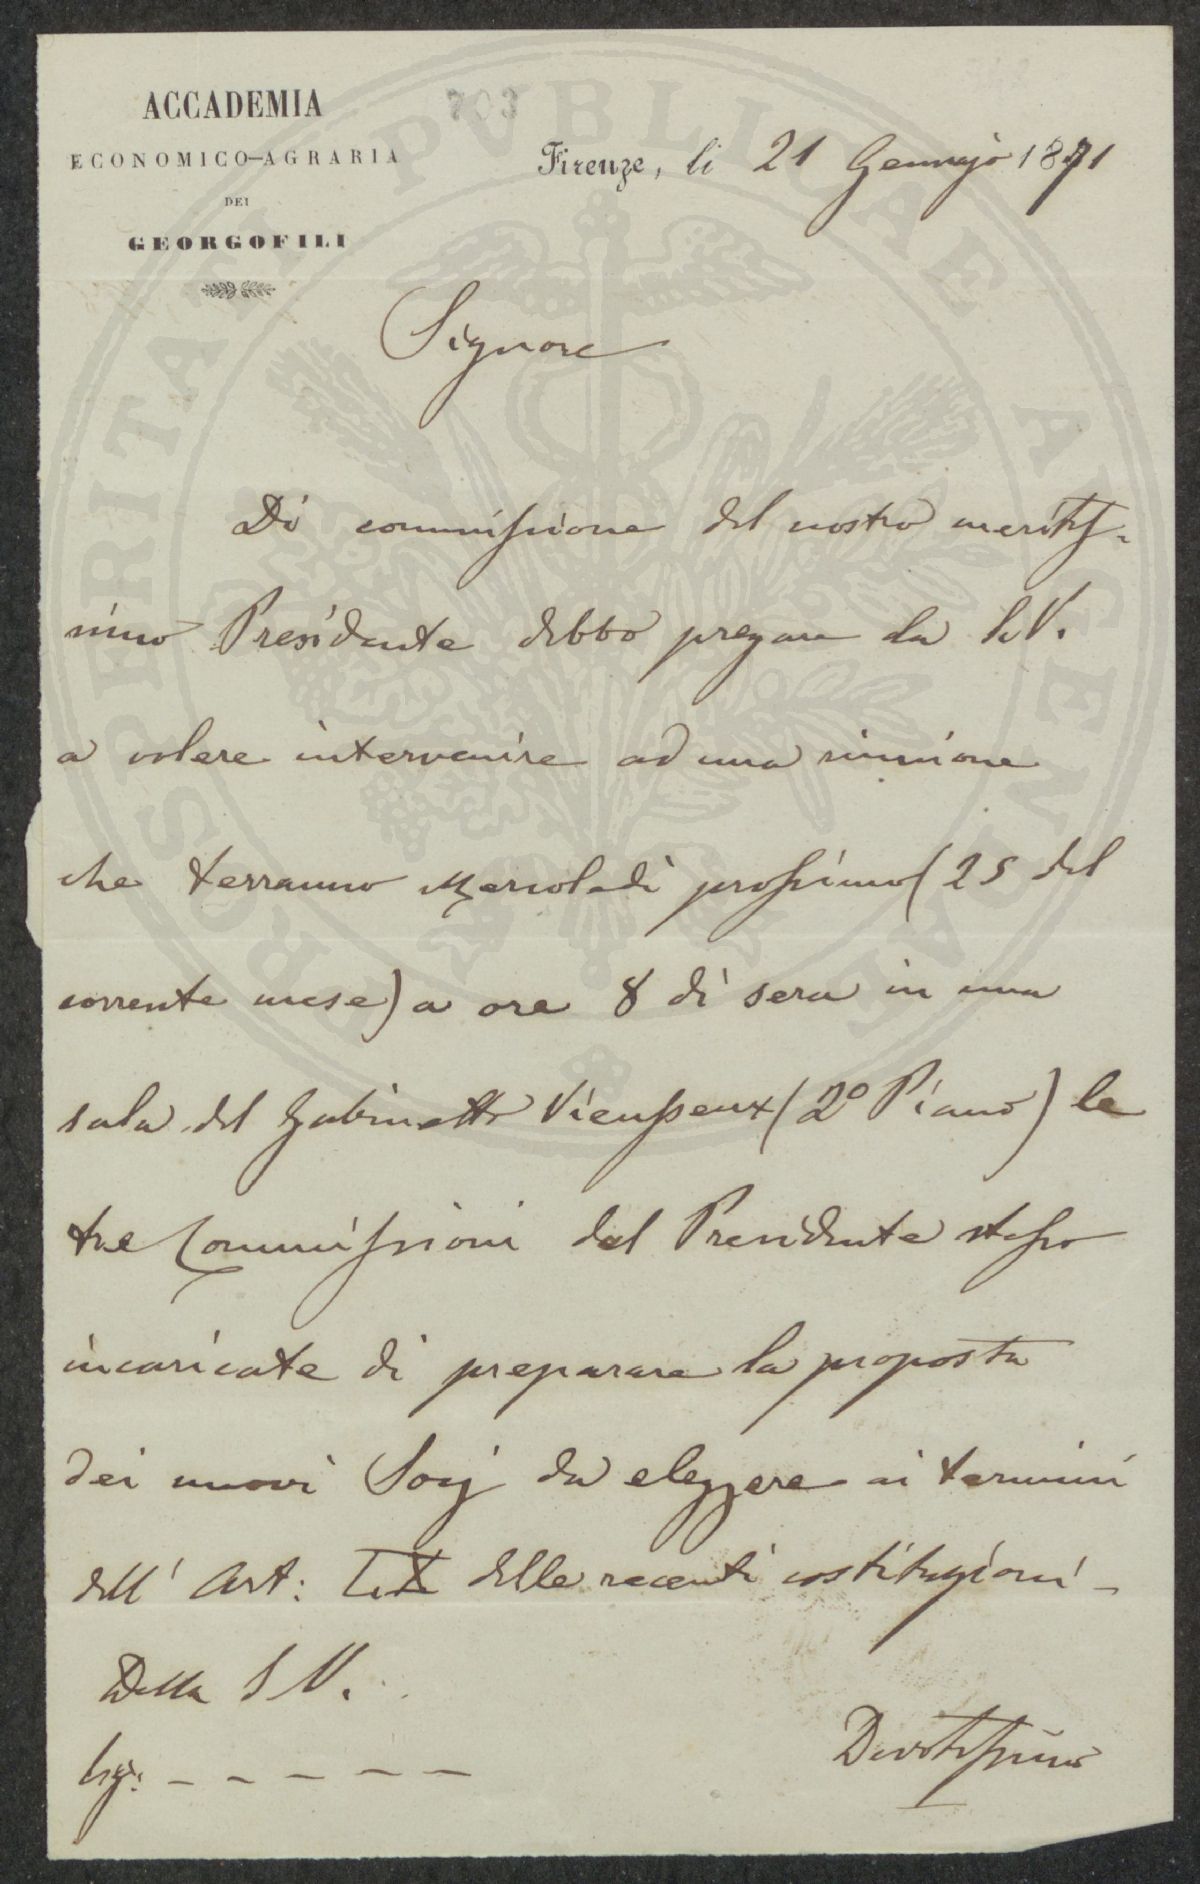 703
ACCADEMIA
ECONOMICO-AGRARIA
DEI
GEORGOFILI
Firenze, li 21 Gennajo 1871
Signore
Di commissione del nostro meritis-
simo Presidente debbo pregare la S. V.
a volere intervenire ad una riunione
che terranno Mercoledì prossimo (25 del
corrente mese) a ore 8 di sera in una
sala del Gabinetto Vieusseux (2º Piano) le
tre Commissioni dal Presidente stesso
incaricate di preparare la proposta
dei nuovi Socj da eleggere ai termini
dell' Art: delle recenti costituzioni -
Della S V.
Sig: - - - - -
Devotissimo
PROSPERITATI PVBLICAE AVGENDAE